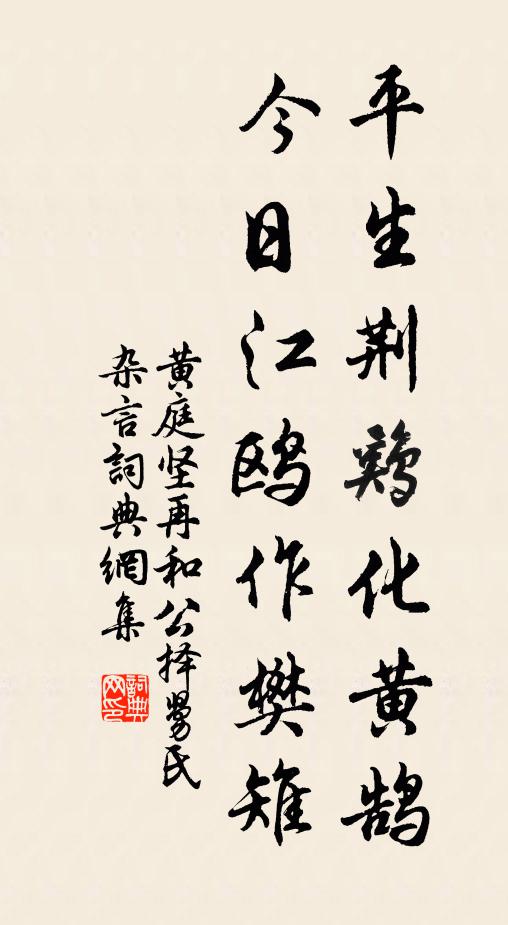 平生荆鷄化黄鹄
今日江鸥作樊雉
黄庭坚再和公择舅氏
杂言詞典網集
詞典网印